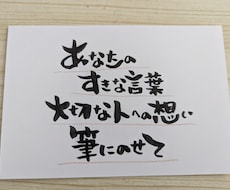 あなたの
すきな言葉
大切な人への想い
筆にのせて